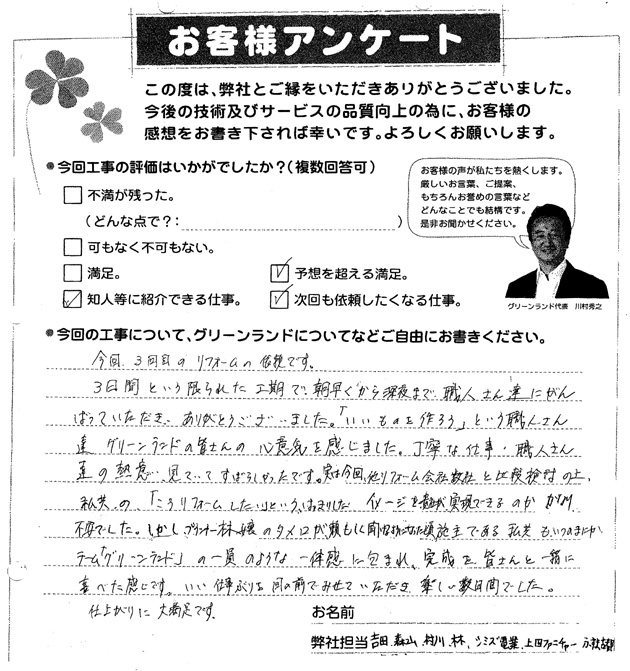 お客様アンケート
この度は、弊社とご縁をいただきありがとうございました。
今後の技術及びサービスの品質向上の為に、お客様の
感想をお書き下されば幸いです。よろしくお願いします。
●今回工事の評価はいかがでしたか？（複数回答可）
不満が残った。
（どんな点で？： ）
可もなく不可もない。
満足。
予想を超える満足。
知人等に紹介できる仕事。
次回も依頼したくなる仕事。
お客様の声が私たちを熱くします。
厳しいお言葉、ご提案、
もちろんお誉めの言葉など
どんなことでも結構です。
是非お聞かせください。
グリーンランド代表 川村秀之
●今回の工事について、グリーンランドについてなどご自由にお書きください。
今回、3回目のリフォームの依頼です。
3日間という限られた工期で、朝早くから深夜まで、職人さん達にがん
ばっていただき、ありがとうございました。「いいものを作ろう」という職人さん
達、グリーンランドの皆さんの心意気を感じました。丁寧な仕事、職人さん
達の熱意、見ていてすばらしかったです。実は今回、他リフォーム会社数社と比較検討の上、
私共の、「こうリフォームしたい」という、はっきりした イメージを 実現できるのか
不安でした。しかし、プランナー林嬢の 施主である私共も、いつのまにか
チーム「グリーンランド」の一員のような一体感に包まれ、完成を皆さんと一緒に
喜べた感じです。いい仕事ぶりを目の前でみせていただき、楽しい数日間でした。
仕上がりに大満足です。
お名前
弊社担当 吉田、森山、村川、林、シミズ電業、上田ファニチャー